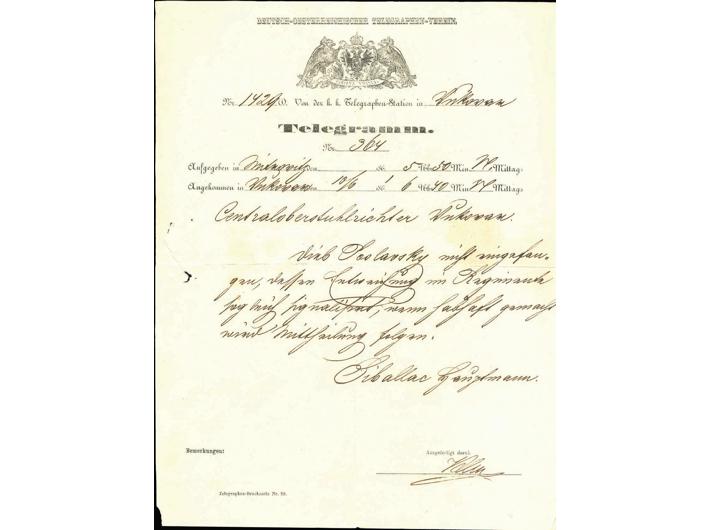 DEUTSCH-OESTERREICHISCHER TELEGRAPHEN-VEREIN.
Nr. 1429 O. Von der k. k. Telegraphen-Station in Vukovar
Telegramm.
Nr. 364
Aufgegeben in Mitrovitz den 186 5 Uhr 50 Min N. Mittag
Angekommen in Vukovar den 10/6 186 1 6 Uhr 40 Min N Mittag
Centraloberstuhlrichter Vukovar.
Dieb Poslavsky nicht eingefan-
gen, dessen Entweichung im Regimente
sogleich signalisirt, wenn habhaft gemacht
wird Mittheilung folgen.
Hauptmann.
Bemerkungen:
Ausgefertigt durch
Telegraphen-Drucksorte Nr.